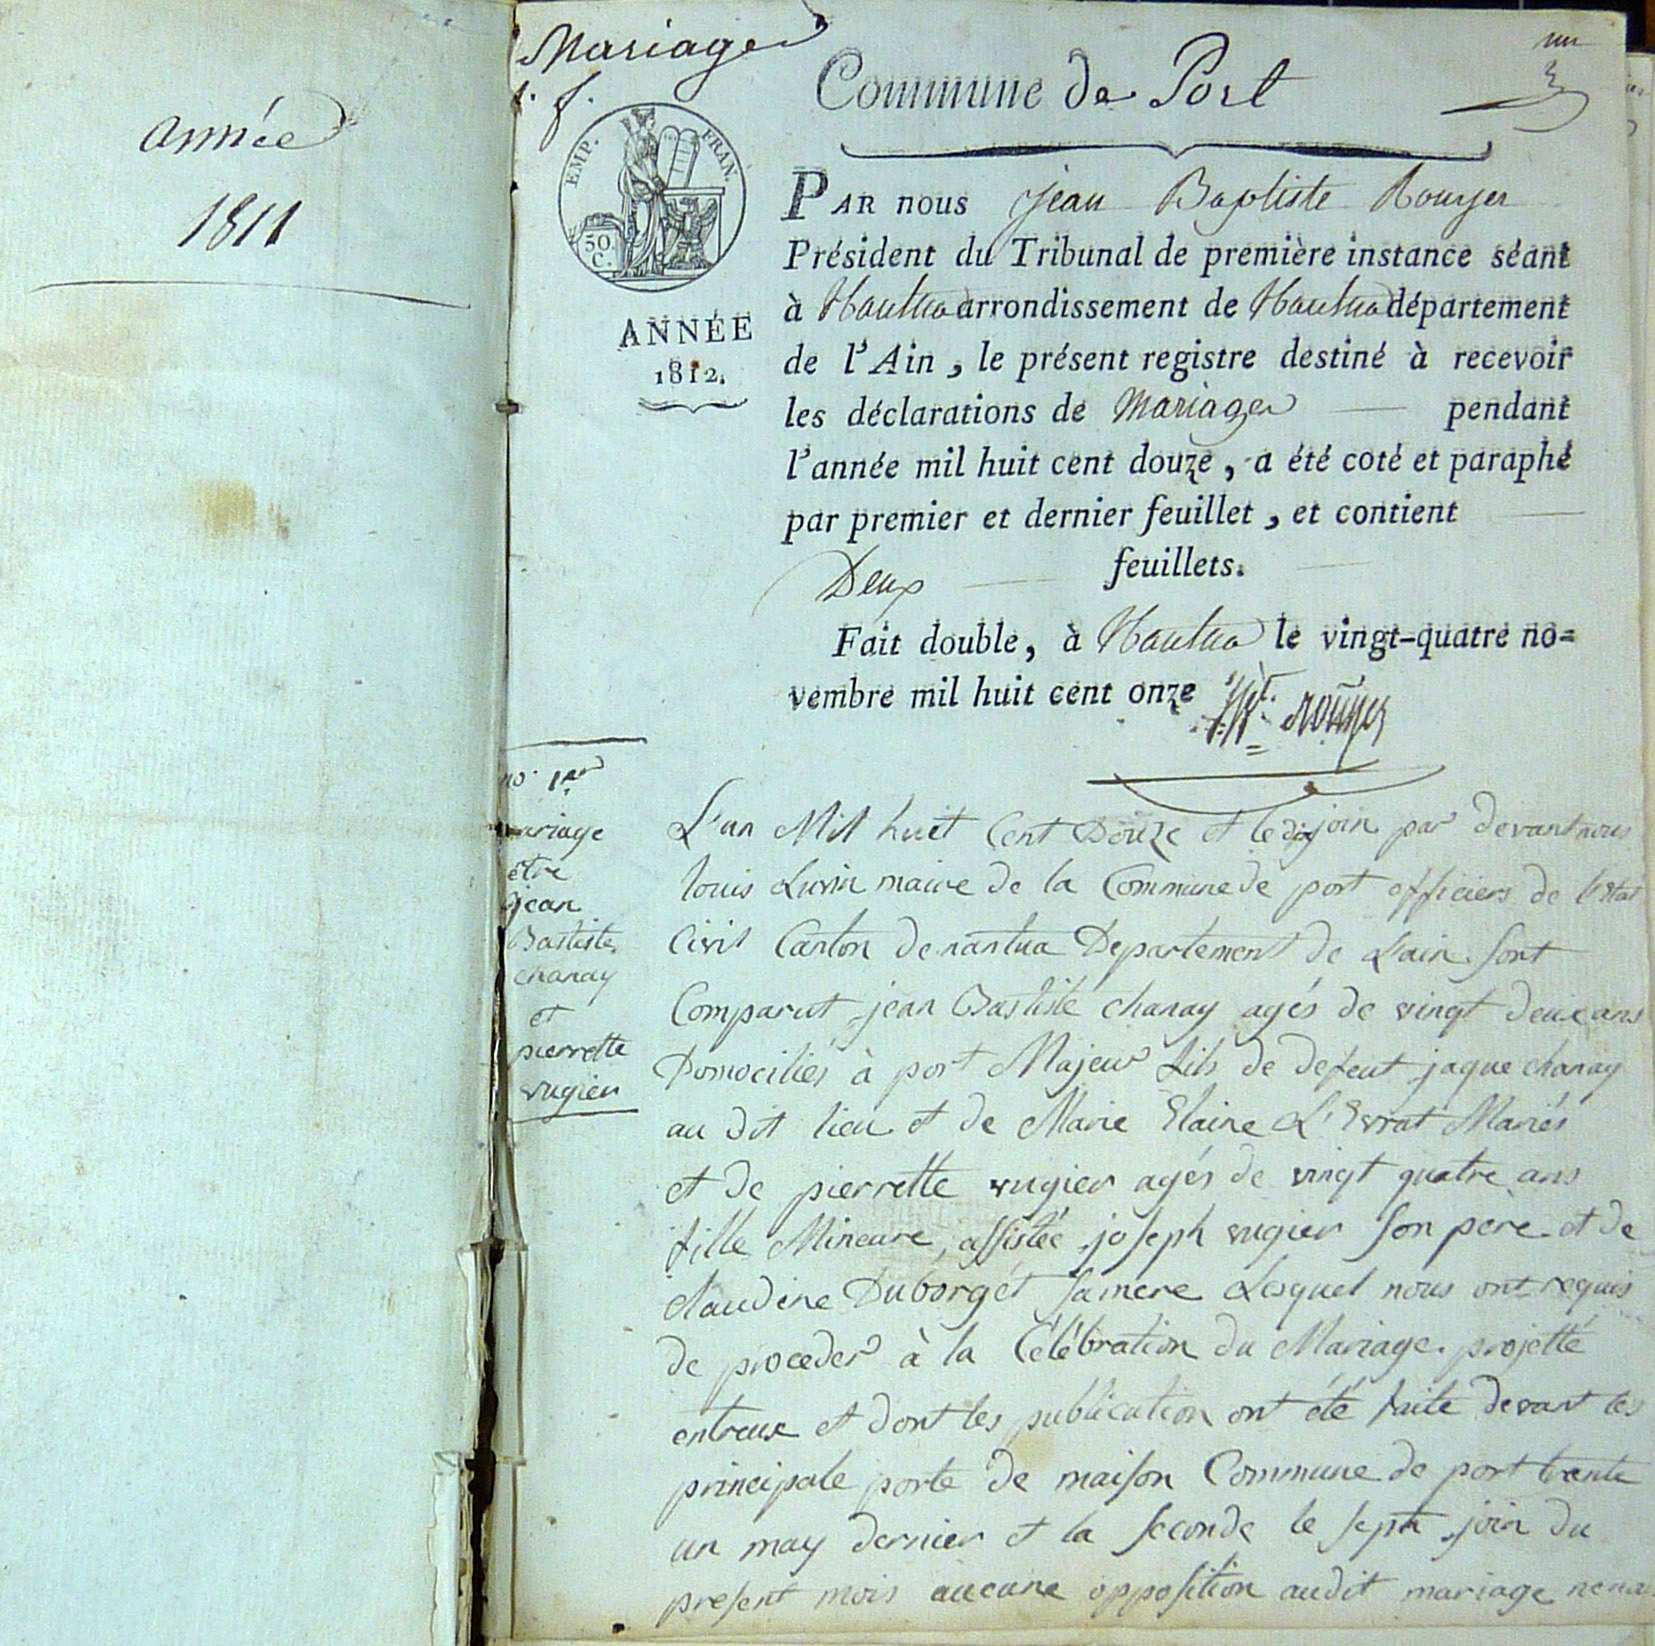 année
1811
Mariages
Commune de Port
un
EMP. FRAN.
50 C.
ANNÉE
1812.
PAR nous jean Baptiste Rouyer
Président du Tribunal de première instance séant
à Nantua arrondissement de Nantua département
de l'Ain, le présent registre destiné à recevoir
les déclarations de Mariages pendant
l'année mil huit cent douze, a été coté et paraphé
par premier et dernier feuillet, et contient
Deux feuillets.
Fait double, à Nantua le vingt-quatre no=
vembre mil huit cent onze
no. 1er
mariage
être
jean
Bastiste
chanay
et
pierrette
vugier
L'an Mil huit Cent Douze et le dix join par devant nous
louis Luvin maire de la Commune de port officiers de l'Etat
Civil Canton de nantua Departement de L'ain Sont
Comparut jean Bastiste chanay agés de vingt deux ans
Domociliés à port Majeur fils de defeut jaque chanay
au dit lieu et de Marie Elaine L'Evrat Mariés
et de pierrette vugier agés de vingt quatre ans
fille Mineure, assistée joseph vugier son père et de
claudine Duborget sa mère Lesquel nous ont requis
de proceder à la Célébration du Mariage projetté
entreux et dont les publication ont été faite devant les
principale porte de maison Commune de port trente
un may dernier et la seconde le sept join du
present mois aucune opposition audit mariage